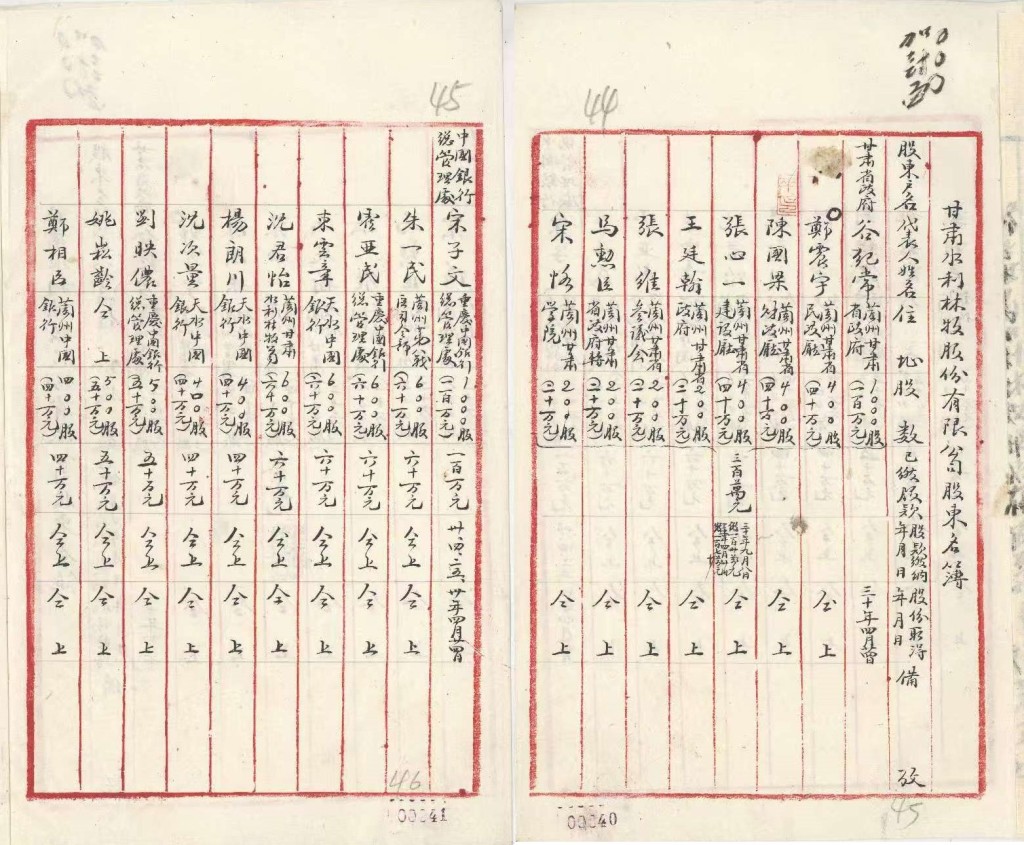 44
甘肅水利林牧股份有限公司股東名簿
股東戶名 代表人姓名 住址 股數 已繳股款 股款繳納年月日 股份取得年月日 備攷
甘肅省政府 谷紀常 蘭州甘肅省政府 1000股(一百万元) 三十年四月
鄭震宇 蘭州甘肅省民政廳 400股(四十万元) 仝上
陳國梁 蘭州甘肅省財政廳 400股(四十万元) 仝上
張心一 蘭州甘肅省建設廳 400股(四十万元) 三百萬元 仝上
王廷翰 蘭州甘肅省政府 200股(二十万元) 仝上
張維 蘭州甘肅省參議會 200股(二十万元) 仝上
馬勲臣 蘭州甘肅省政府轉 200股(二十万元) 仝上
宋恪 蘭州甘肅學院 200股(二十万元) 仝上
45
00040
45
中國銀行總管理處 宋子文 重慶中國銀行總管理處 1000股(一百万元) 一百万元 卅年四月
朱一民 蘭州 600股(六十万元) 六十万元 仝上 仝上
霍亜民 重慶中國銀行總管理處 600股(六十万元) 六十万元 仝上 仝上
束雲章 天水中國銀行 600股(六十万元) 六十万元 仝上 仝上
沈君怡 蘭州甘肅水利林牧公司 600股(六十万元) 六十万元 仝上 仝上
楊朗川 天水中國銀行 400股(四十万元) 四十万元 仝上 仝上
沈次量 天水中國銀行 400股(四十万元) 四十万元 仝上 仝上
劉映儂 重慶中國銀行總管理處 500股(五十万元) 五十万元 仝上 仝上
姚崧齡 仝上 500股(五十万元) 五十万元 仝上 仝上
鄭相臣 蘭州中國銀行 400股(四十万元) 四十万元 仝上 仝上
46
00041